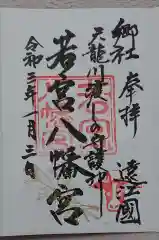 郷社 奉拝
遠江國
天龍川渡しの守護神
若宮八幡宮
令和三年一月三日